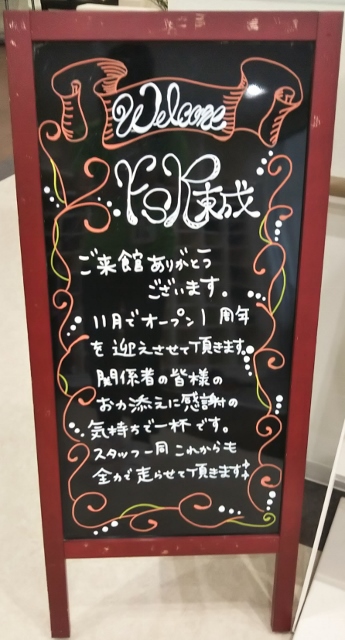 Welcome
KSK東成
ご来館ありがとう
ございます。
11月でオープン1周年
を迎えさせて頂きます。
関係者の皆様の
お力添えに感謝の
気持ちで一杯です。
スタッフ一同これからも
全力で走らせて頂きます